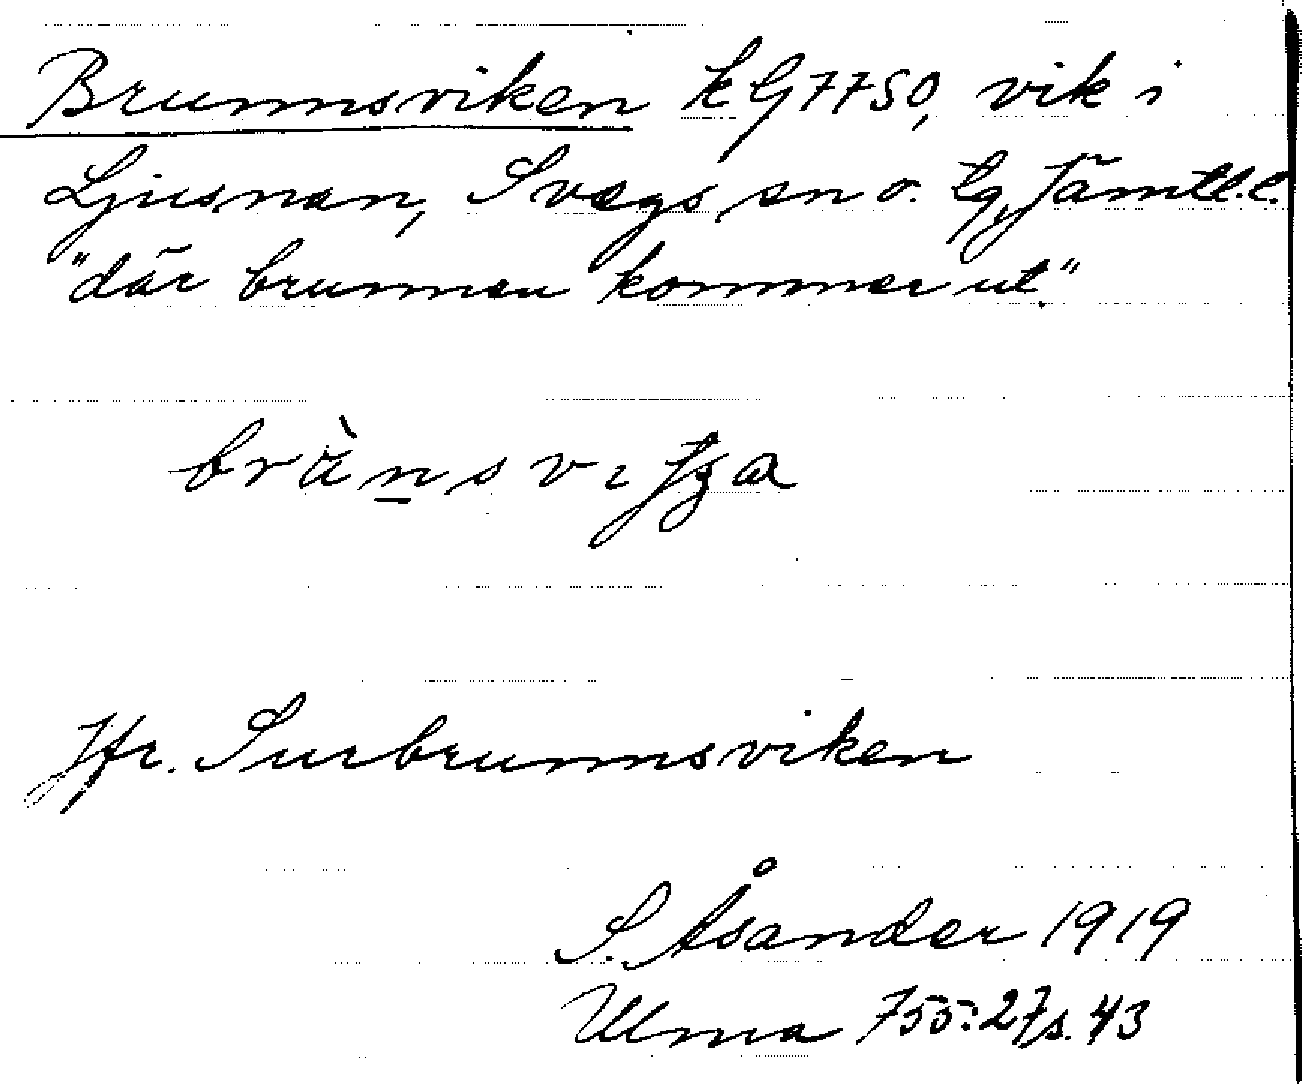 Brunnsviken kG7750, vik i
Ljusnan, Svegs sn o. tg, Jämtl. l.
"där brunnen kommer ut."
Jfr. Surbrunnsviken
S. Åsander 1919
Ulma 755:27 s. 43